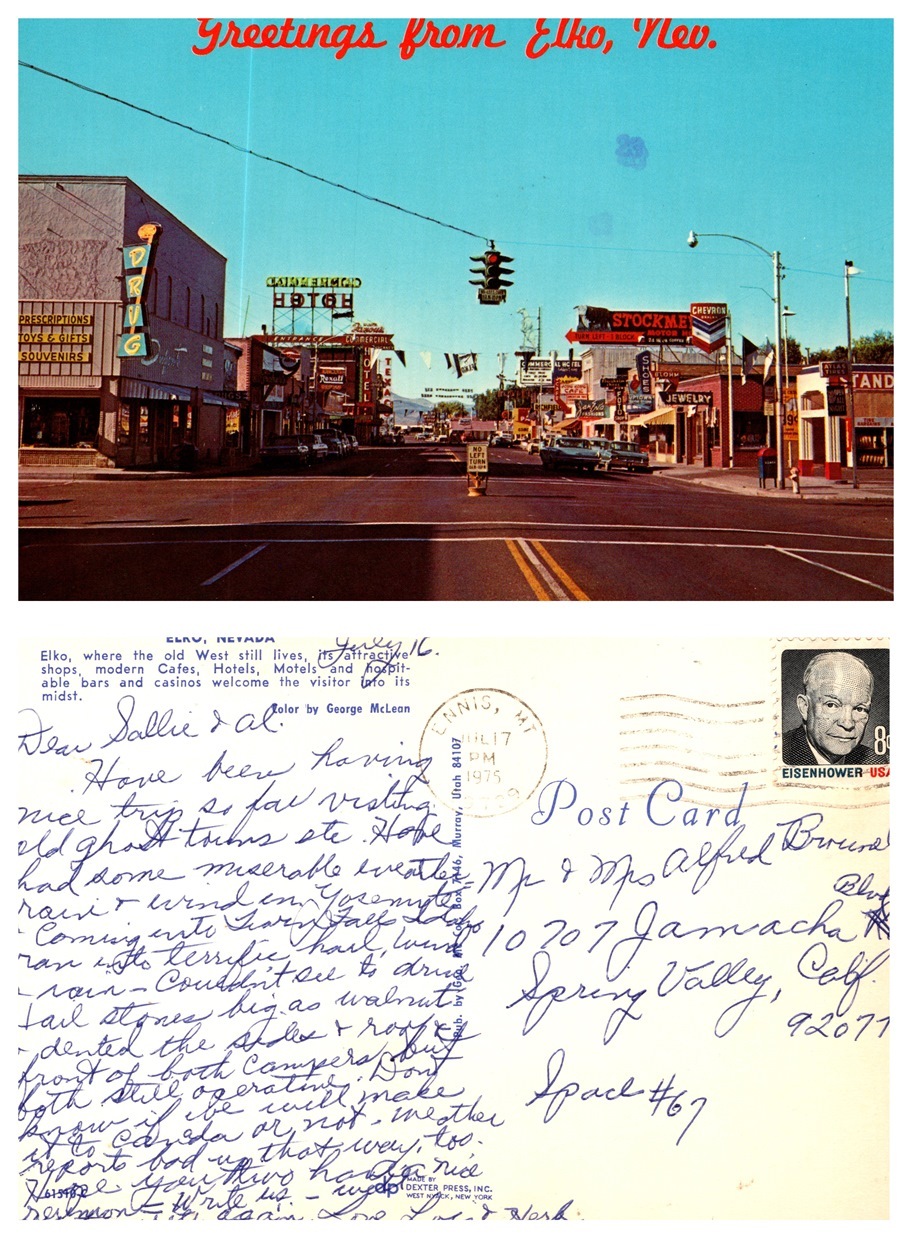 Greetings from Elko, Nev.
DRUG
PRESCRIPTIONS
TOYS & GIFTS
SOUVENIRS
HOTEL
ENTRANCE
COMMERCIAL
HOTEL
Rexall
STOCKME
MOTOR H
TURN LEFT - 1 BLOCK
CHEVRON
COMMERCIAL HOTEL
SHOES
JEWELRY
ATLAS
STAND
NO
LEFT
TURN
ELKO, NEVADA
Elko, where the old West still lives, its attractive
shops, modern Cafes, Hotels, Motels and hospit-
able bars and casinos welcome the visitor into its
midst.
Color by George McLean
July 16.
Dear Sallie & Al.
Have been having
nice trip so far visiting
old ghost towns etc. Have
had some miserable weather
rain & wind in Yosemite
Coming into Twin Falls Idaho
ran into terrific hail, wind
- rain - Couldn't see to drive
Hail stones big as walnuts
- dented the sides & roof &
front of both Campers, but
both still operative. Don't
know if we will make
it to Canada or not - weather
reports bad up that way, too.
Hope you two had a nice
Write us -
again Love & Herb.
61546-C
MADE BY
dp DEXTER PRESS, INC.
WEST NYACK, NEW YORK
Pub. by Geo. Box 7446, Murray, Utah 84107
ENNIS, MT
JUL 17
PM
1975
8c
EISENHOWER USA
Post Card
Mr & Mrs Alfred
10707 Jamacha Blvd
Spring Valley, Calif.
92077
Space #67